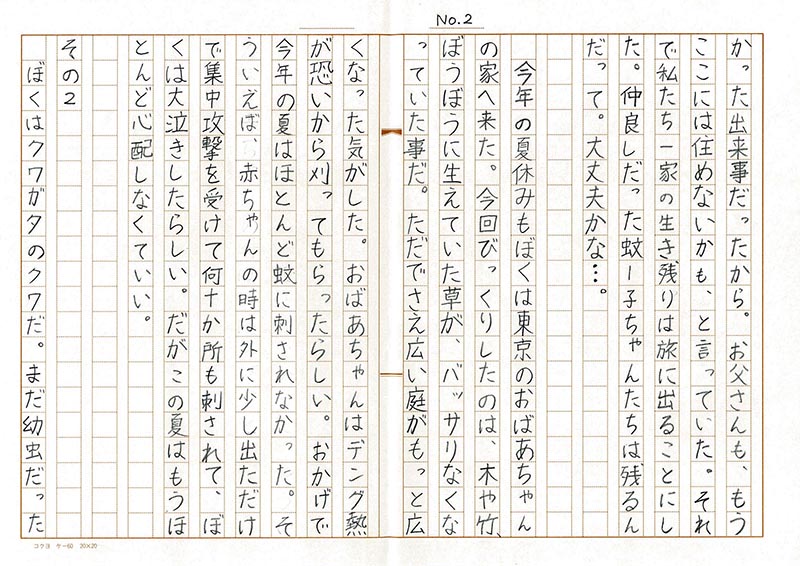 No.2
かった出来事だったから。お父さんも、もう
ここには住めないかも、と言っていた。それ
で私たち一家の生き残りは旅に出ることにし
た。仲良しだった蚊ー子ちゃんたちは残るん
だって。大丈夫かな…。
今年の夏休みもぼくは東京のおばあちゃん
の家へ来た。今回びっくりしたのは、木や竹、
ぼうぼうに生えていた草が、バッサリなくな
っていた事だ。ただでさえ広い庭がもっと広
くなった気がした。おばあちゃんはデング熱
が恐いから刈ってもらったらしい。おかげで
今年の夏はほとんど蚊に刺されなかった。そ
ういえば、赤ちゃんの時は外に少し出ただけ
で集中攻撃を受けて何十か所も刺されて、ぼ
くは大泣きしたらしい。だがこの夏はもうほ
とんど心配しなくていい。
その2
ぼくはクワガタのクワだ。まだ幼虫だった
コクヨ ケー60 20×20